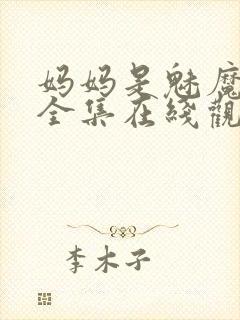 妈妈是魅魔
全集在綫觀
李木子